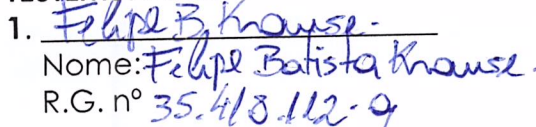 1. Felipe B. Krause.
Nome: Felipe Batista Krause.
R.G. nº 35.418.112-9